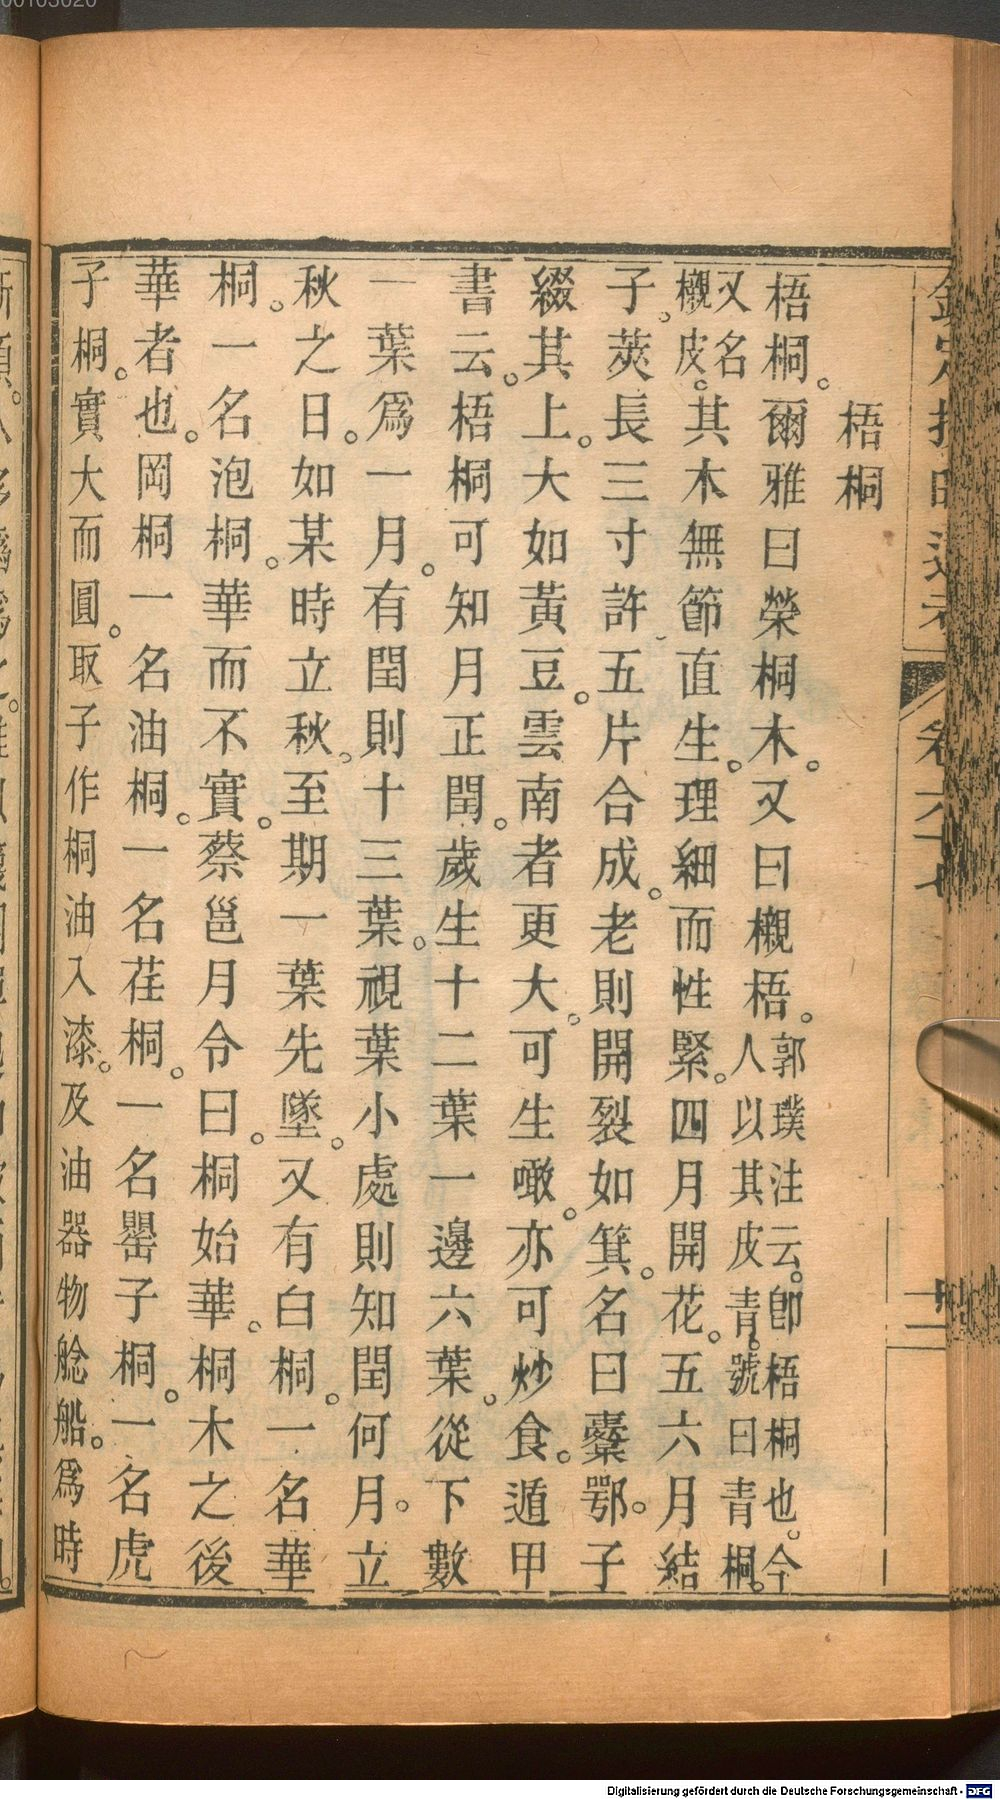 梧桐
梧桐。爾雅曰榮桐木。又曰櫬梧。郭璞注云。卽梧桐也。今人以其皮青。號曰青桐。
又名櫬皮。其木無節直生。理細而性緊。四月開花。五六月結
子。莢長三寸許。五片合成。老則開裂如箕。名曰櫜鄂。子
綴其上。大如黃豆。雲南者更大。可生噉。亦可炒食。遁甲
書云。梧桐可知月正閏。歲生十二葉一邊六葉。從下數
一葉爲一月。有閏則十三葉。視葉小處則知閏何月。立
秋之日。如某時立秋。至期一葉先墜。又有白桐。一名華
桐。一名泡桐。華而不實。蔡邕月令曰。桐始華。桐木之後
華者也。岡桐一名油桐。一名荏桐。一名罌子桐。一名虎
子桐。實大而圓。取子作桐油入漆。及油器物艌船。爲時
Digitalisierung gefördert durch die Deutsche Forschungsgemeinschaft - DFG